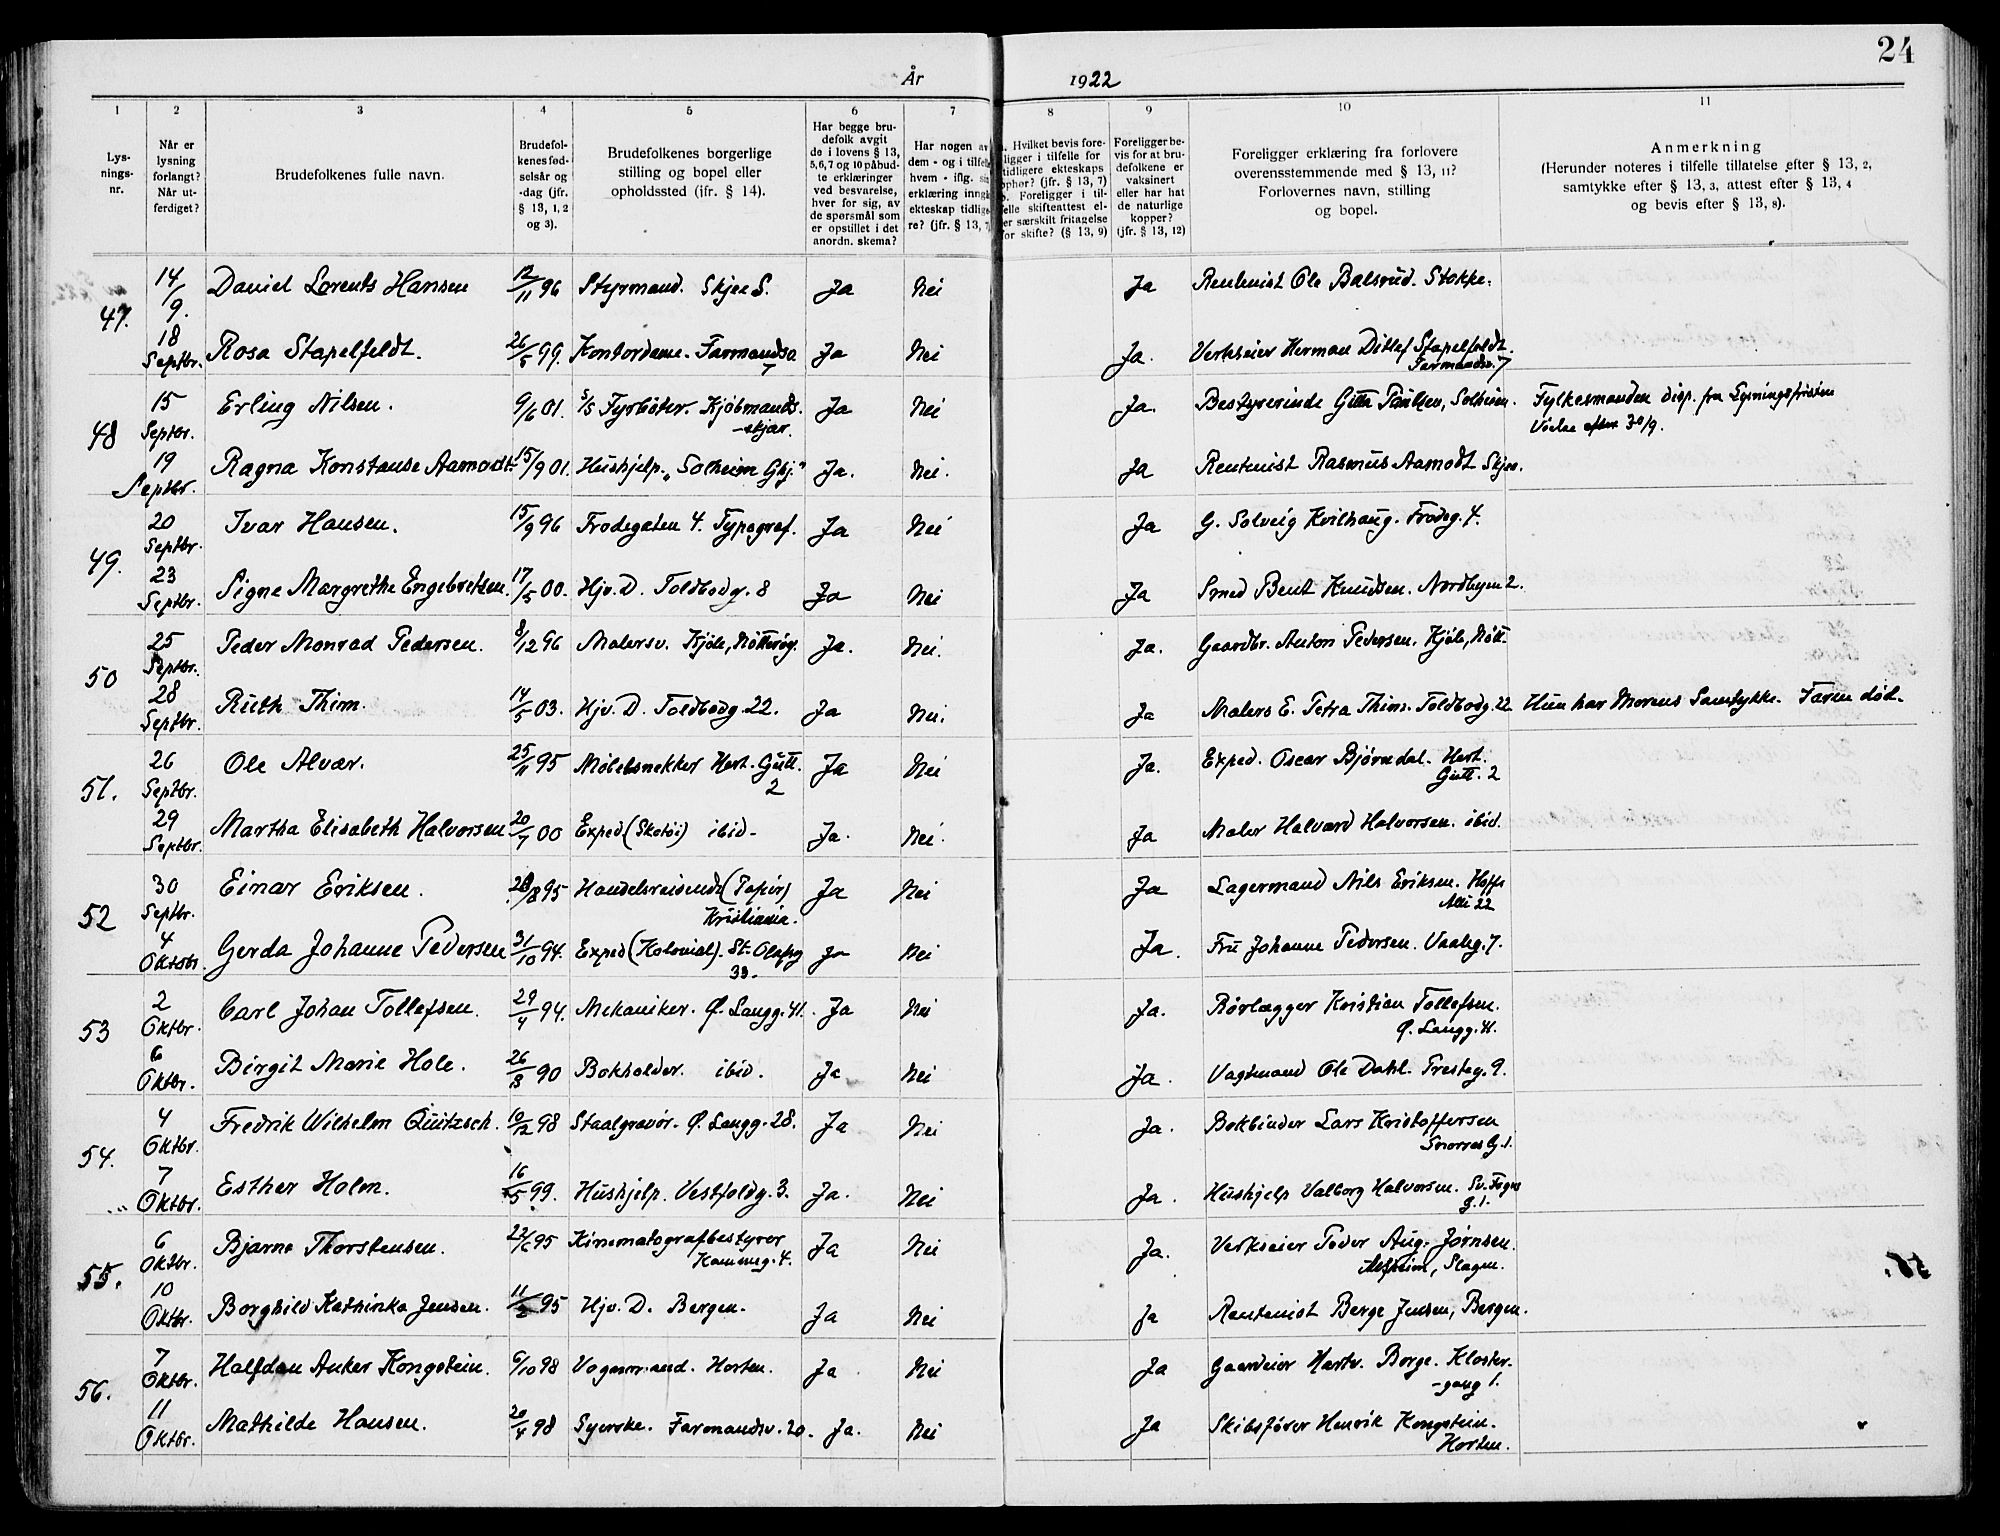 24
År 1922
1 2 3 4 5 6 7 8 9 10 11
Lysningsnr.
Når er lysning forlangt? Når utferdiget?
Brudefolkenes fulle navn.
Brudefolkenes fødselsår og -dag (jfr. § 13, 1, 2 og 3).
Brudefolkenes borgerlige stilling og bopel eller opholdssted (jfr. § 14).
Har begge brudefolk avgit de i lovens § 13, 5, 6, 7 og 10 påbudte erklæringer ved besvarelse, hver for sig, av de spørsmål som er opstillet i det anordn. skema?
Har nogen av dem - og i tilfelle hvem - iflg. sin erklæring inngå ekteskap tidligere? (jfr. § 13, 7
Hvilket bevis foreligger i tilfelle for tidligere ekteskaps ophør? (jfr. § 13, 7) b. Foreligger i tilfelle skifteattest eller særskilt fritagelse for skifte? (§ 13, 9)
Foreligger bevis for at brudefolkene er vaksinert eller har hat de naturlige kopper? (jfr. § 13, 12)
Foreligger erklæring fra forlovere overensstemmende med § 13, 11? Forlovernes navn, stilling og bopel.
Anmerkning (Herunder noteres i tilfelle tillatelse efter § 13, 2, samtykke efter § 13, 3, attest efter § 13, 4 og bevis efter § 13, 8).
47. 14/9. Daniel Lorents Hansen 12/11 96 Styrmand. Skjee S. Ja Nei Ja Rentenist Ole Balsrud. Stokke.
18 Septbr. Rosa Stapelfeldt. 26/5 99. Kontordame. Farmandsv 7 Ja Nei Ja. Verkseier Herman Ditlef Stapelfeldt. Farmandsv. 7
48 15 Septbr. Erling Nilsen. 9/6 01. S/S Fyrbøter. Kjøbmands-skjær. Ja Nei Ja. Bestyrerinde Gitta Paulsen, Solheim. Fylkesmanden disp. fra Lysningsfristen Vielse efter 30/9.
19 Septbr. Ragna Konstanse Aamodt. 15/9 01. Hushjelp. "Solheim Gkj." Ja. Nei. Ja Rentenist Rasmus Aamodt Skjee.
49. 20 Septbr. Ivar Hansen. 15/9 96 Frodegaten 4. Typograf. Ja Nei Ja G. Solveig Kvilhaug. Frodeg. 4.
23 Septbr. Signe Margrethe Engebretsen. 17/5 00. Hjv. D. Toldbodg. 8 Ja Nei Ja Smed Bent Knudsen. Nordbyen 2.
50 25 Septbr. Peder Monrad Pedersen. 8/12 96 Malersv. Kjøle, Nøtterøy. Ja. Nei. Ja. Gaardbr. Anton Pedersen. Kjøle, Nøtt.
28 Septbr. Ruth Thim. 14/5 03. Hjv. D. Toldbodg. 22. Ja Nei. Ja Malers E. Petra Thim. Toldbodg. 22 Hun har Morens Samtykke. Faren død.
51. 26 Septbr. Ole Alvær. 25/11 95 Møbelsnekker Hert. Gutt. 2 Ja Nei Ja. Exped. Oscar Bjørndal. Hert. Gutt. 2
29 Septbr. Martha Elisabeth Halvorsen 20/7 00 Exped (Skotøi) ibid. Ja. Nei. Ja Maler Halvard Halvorsen. ibid.
52 30 Septbr. Einar Eriksen. /8 95 Handelsreisende (Papir) Kristiania. Ja Nei Ja Lagermand Nils Eriksen. Hoffs Alle 22
4 Oktobr. Gerda Johanne Pedersen 31/10 94. Exped (Kolonial). St. Olafsg 33. Ja Nei Ja. Fru Johanne Pedersen. Vaaleg. 7.
53 2 Oktbr. Carl Johan Tollefsen. 29/4 94. Mekaniker. Ø. Langg. 41. Ja Nei Ja. Rørlægger Kristian Tollefsen. Ø. Langg. 41.
6 Oktbr. Birgit Marie Hole. 26/8 90 Bokholder. ibid. Ja Nei Ja. Vagtmand Ole Dahl. Presteg. 9.
54. 4 Oktbr. Fredrik Wilhelm Quitzsch. 10/12 98 Staalgravør. Ø. Langg. 28. Ja Nei Ja. Bokbinder Lars Kristoffersen Snorres G. 1.
7 Oktbr. Esther Holm. 16/5 99. Hushjelp. Vestfoldg. 3. Ja. Nei Ja. Hushjelp Valborg Halvorsen. Sv. Foyns G. 1.
55. 6 Oktbr. Bjarne Thorstensen. 22/6 95 Kinematografbestyrer Kammeg. 4. Ja Nei Ja. Verkseier Peder Aug. Jørnsen. Solheim, Slagen.
10 Oktbr. Borghild Kathinka Jensen. 11/2 95 Hjv. D. Bergen. Ja Nei Ja Rentenist Berge Jensen, Bergen.
56. 7 Oktbr. Halfdan Anker Kongstein. 6/10 98 Vognmand. Horten. Ja Nei Ja Gaardeier Hartv. Borge. Kloster-gang 1.
11 Oktbr. Mathilde Hansen. 20/4 98 Syerske. Farmandsv. 20. Ja. Nei Ja Skibsfører Henrik Kongstein. Horten.